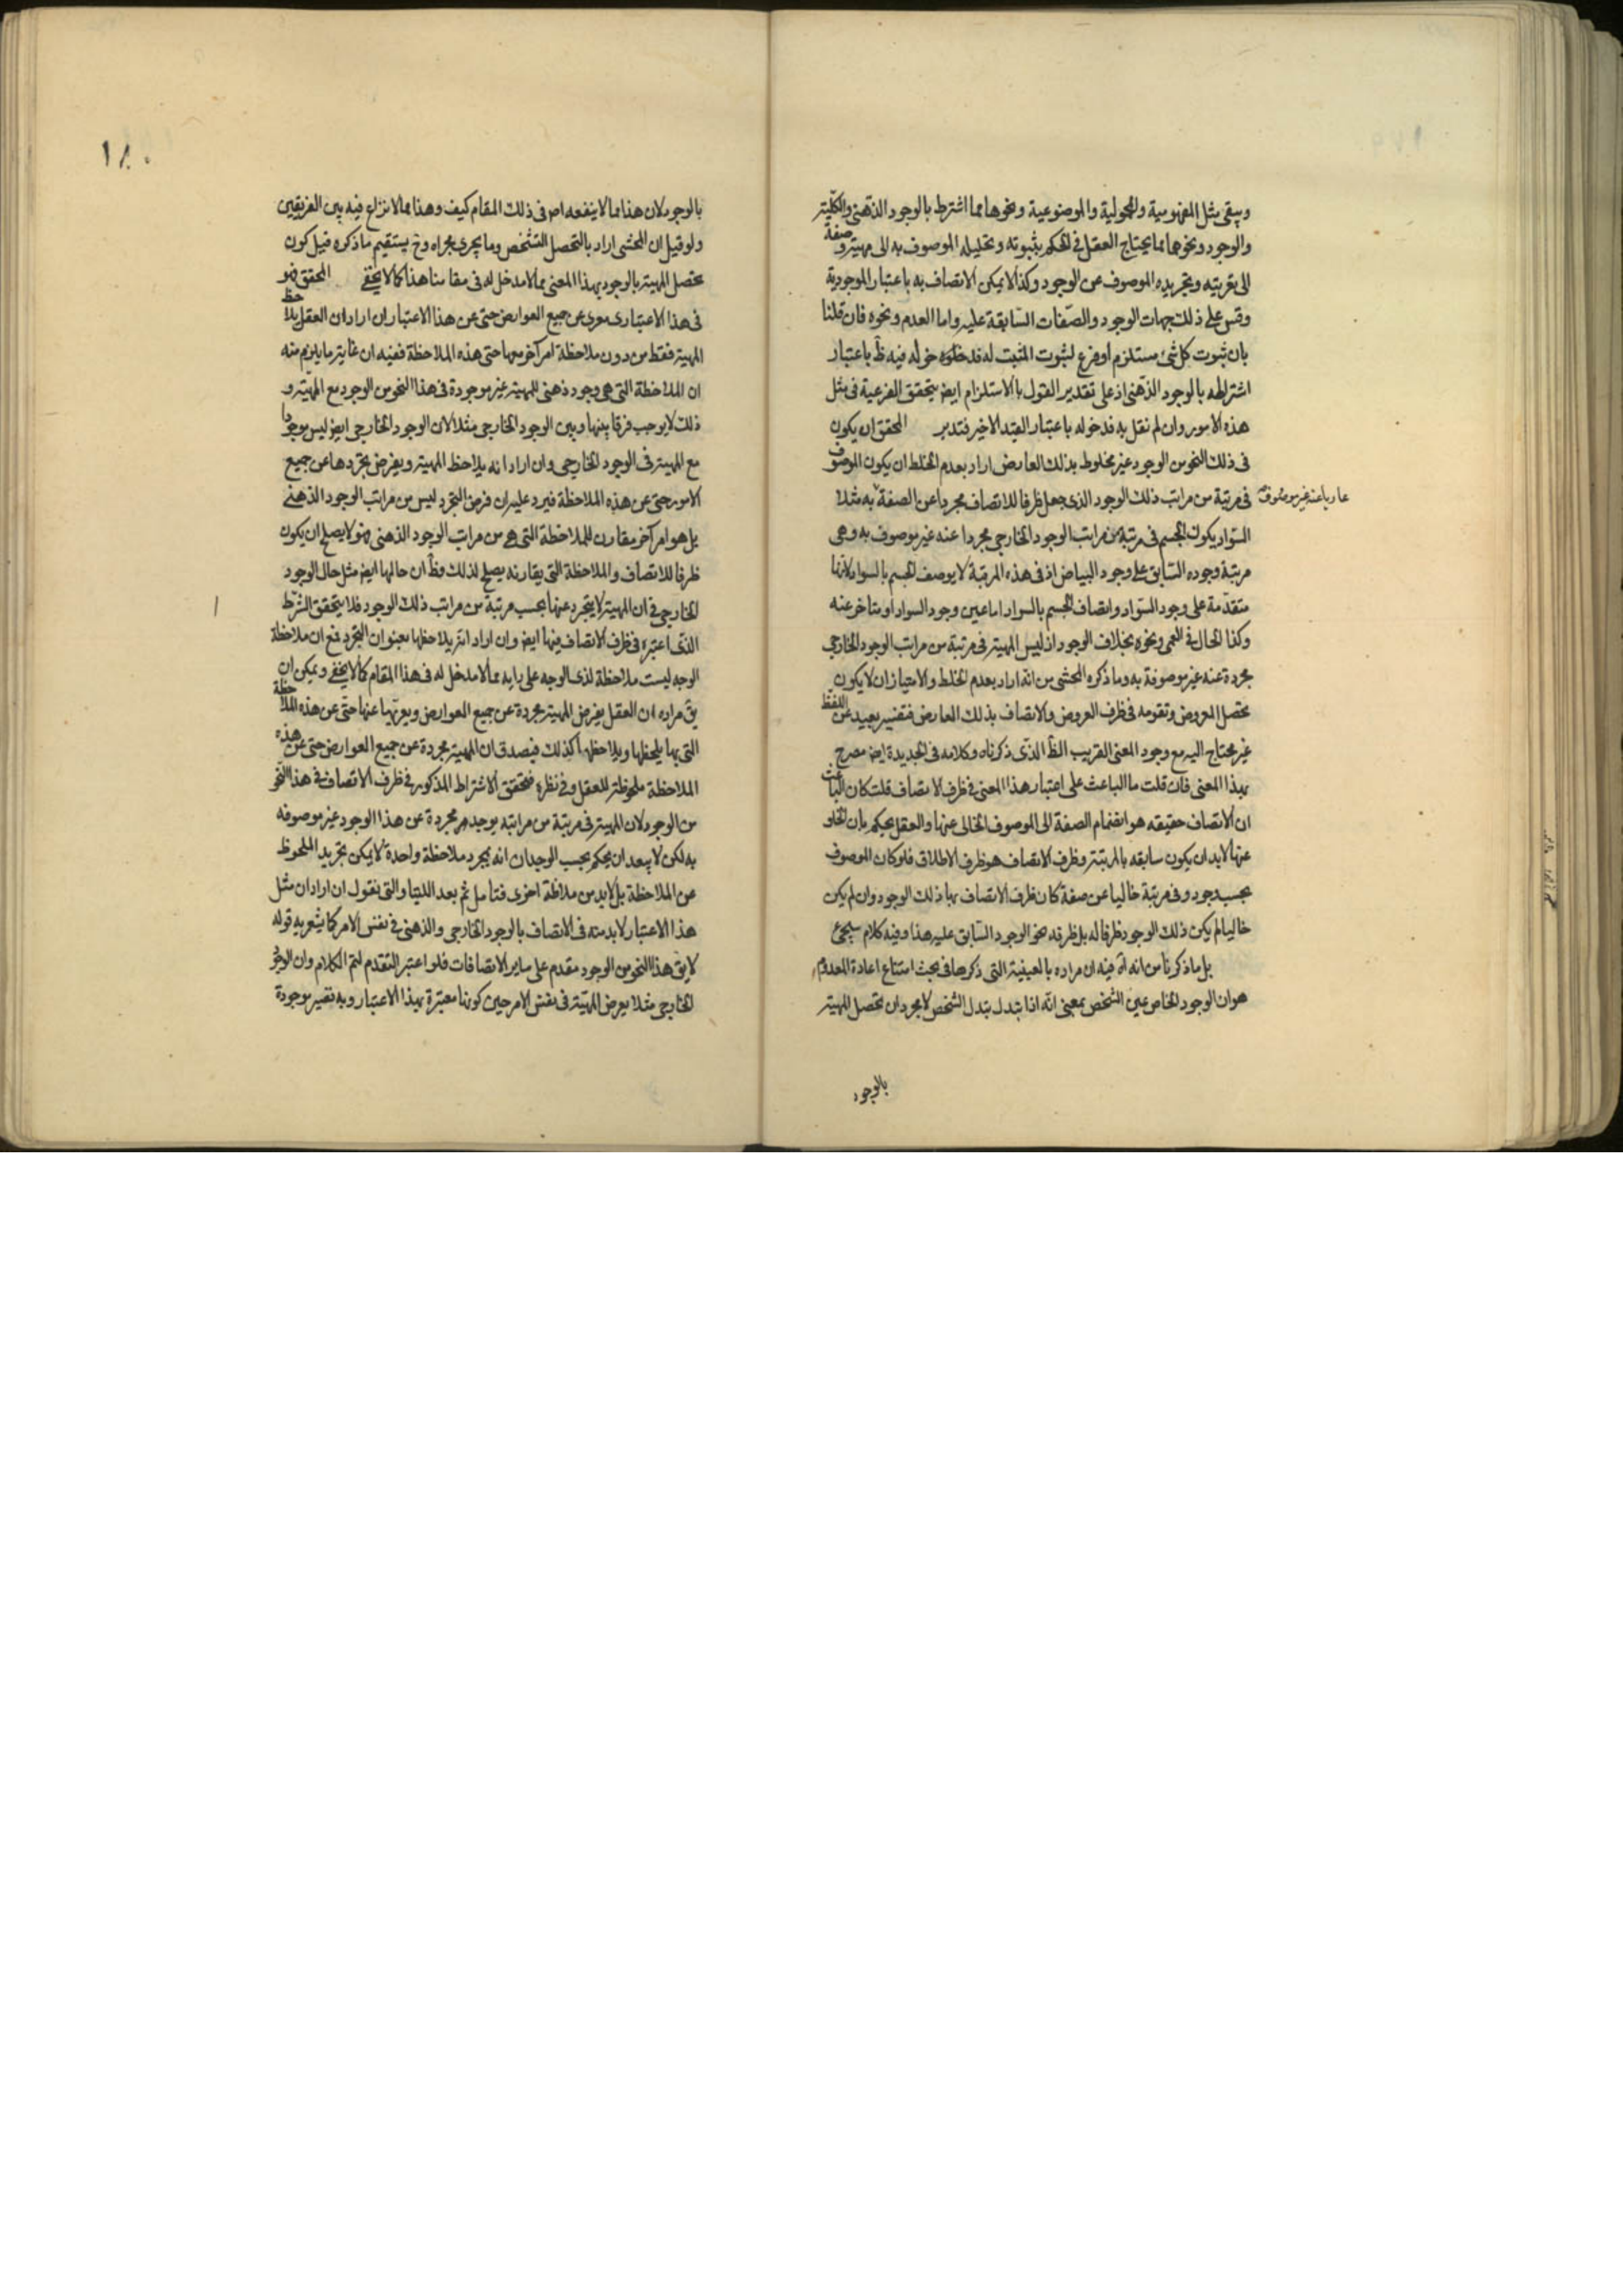 ويبقى مثل المفهومية والمحمولية والموضوعية ونحوها مما اشترط بالوجود الذهني والكلية
والوجود ونحوهما مما يحتاج العقل في الحكم بثبوته وتحليله الموصوف به الى مهية وصفة
الى تعريته وتجريده الموصوف عن الوجود وكذا لا يمكن الاتصاف به باعتبار الموجودية
وقس على ذلك جهات الوجود والصفات السابقة عليه واما العدم ونحوه فان قلنا
بان ثبوت كل شئ مستلزم او فرع لثبوت المثبت له فدخوله فيه ظ باعتبار
اشتراطه بالوجود الذهني اذ على تقدير القول بالاستلزام ايض يتحقق الفرعية في مثل
هذه الامور وان لم نقل به فدخوله باعتبار القيد الاخير فتدبر المحقق ان يكون
في ذلك النحو من الوجود غير مخلوط بذلك العارض اراد بعدم الخلط ان يكون الموصوف
في مرتبة من مراتب ذلك الوجود الذي جعل ظرفا للاتصاف مجردا عن الصفة به مثلا
عاريا عنه غير موصوف
السواد يكون الجسم في مرتبة من مراتب الوجود الخارجي مجردا عنه غير موصوف به وهي
مرتبة وجوده السابق على وجود البياض اذ في هذه المرتبة لا يوصف الجسم بالسواد لانها
متقدمة على وجود السواد واتصاف الجسم بالسواد اما عين وجود السواد او متاخر عنه
وكذا الحال في العمى ونحوه بخلاف الوجود اذ ليس المهية في مرتبة من مراتب الوجود الخارجي
مجردة عنه غير موصوفة به وما ذكره المحشى من انه اراد بعدم الخلط والامتياز ان لا يكون
تحصل المعروض وتقومه في ظرف العروض والاتصاف بذلك العارض فتفسير بعيد عن اللفظ
غير محتاج اليه مع وجود المعنى القريب الظ الذي ذكرناه وكلامه في الجديدة ايض مصرح
بهذا المعنى فان قلت ما الباعث على اعتبار هذا المعنى في ظرف الاتصاف قلت كان الباعث
ان الاتصاف حقيقه هو انضمام الصفة الى الموصوف الخالى عنها والعقل يحكم بان الخلو
عنها لابد ان يكون سابقه بالمرتبة وظرف الاتصاف هو ظرف الاطلاق فلو كان الموصوف
بحسب وجود وفي مرتبة خاليا عن صفة كان ظرف الاتصاف بها ذلك الوجود وان لم يكن
خاليا لم يكن ذلك الوجود ظرفا له بل ظرفه نحو الوجود السابق عليه هذا وفيه كلام سيجئ
بل ما ذكرنا من انه اه فيه ان مراده بالعينية التى ذكرها في بحث امتناع اعادة المعدوم
هو ان الوجود الخاص عين الشخص بمعنى انه اذا تبدل تبدل الشخص لا مجرد ان تحصل المهية
بالوجود
١٨٠
بالوجود لان هذا مما لا ينفعه اص في ذلك المقام كيف وهذا مما لا نزاع فيه بين الفريقين
ولو قيل ان المحشى اراد بالتحصل التشخص وما يجرى مجراه وح يستقيم ما ذكره قيل كون
تحصل المهية بالوجود بهذا المعنى مما لا مدخل له في مقامنا هذا كما لا يخفى المحقق فهو
في هذا الاعتبار معرى عن جميع العوارض حتى عن هذا الاعتبار ان اراد ان العقل يلاحظ
المهية فقط من دون ملاحظة امر آخر معها حتى هذه الملاحظة ففيه ان غاية ما يلزم منه
ان الملاحظة التى هي وجود ذهنى للمهية غير موجودة في هذا النحو من الوجود مع المهية و
ذلك لا يوجب فرقا بينها وبين الوجود الخارجي مثلا لان الوجود الخارجي ايض ليس موجودا
مع المهية في الوجود الخارجي وان اراد انه يلاحظ المهية ويفرض تجردها عن جميع
الامور حتى عن هذه الملاحظة فيرد عليه ان فرض التجرد ليس من مراتب الوجود الذهنى
بل هو امر آخر مقارن للملاحظة التى هي من مراتب الوجود الذهنى فهو لا يصلح ان يكون
ظرفا للاتصاف والملاحظة التى يقارنه يصلح لذلك وظ ان حالها ايض مثل حال الوجود
الخارجي في ان المهية لا يتجرد عنها بحسب مرتبة من مراتب ذلك الوجود فلا يتحقق الشرط
الذى اعتبره في ظرف الاتصاف فيها ايض وان اراد انه يلاحظها بعنوان التجرد فع ان ملاحظة
الوجه ليست ملاحظة لذى الوجه على رايه مما لا مدخل له في هذا المقام كما لا يخفى ويمكن ان
يق مراده ان العقل يفرض المهية مجردة عن جميع العوارض ويعريها عنها حتى عن هذه الملاحظة
التى بها يلحظها ويلاحظها كذلك فيصدق ان المهية مجردة عن جميع العوارض حتى عن هذه
الملاحظة ملحوظة للعقل وفي نظره فتحقق الاشتراط المذكور في ظرف الاتصاف في هذا النحو
من الوجود لان المهية في مرتبة من مراتبه يوجد مجردة عن هذا الوجود غير موصوفه
به لكن لا يبعد ان يحكم بحسب الوجدان انه بمجرد ملاحظة واحدة لا يمكن تجريد الملحوظ
عن الملاحظة بل لابد من ملاحظة اخرى فتامل ثم بعد اللتيا والتى نقول ان اراد ان مثل
هذا الاعتبار لابد منه في الاتصاف بالوجود الخارجي والذهنى في نفس الامر كما يشعر به قوله
لا يق هذا النحو من الوجود مقدم على ساير الاتصافات فلو اعتبر التقدم لتم الكلام وان الوجود
الخارجي مثلا يعرض المهية في نفس الامر حين كونها معتبرة بهذا الاعتبار وبه تصير موجودة